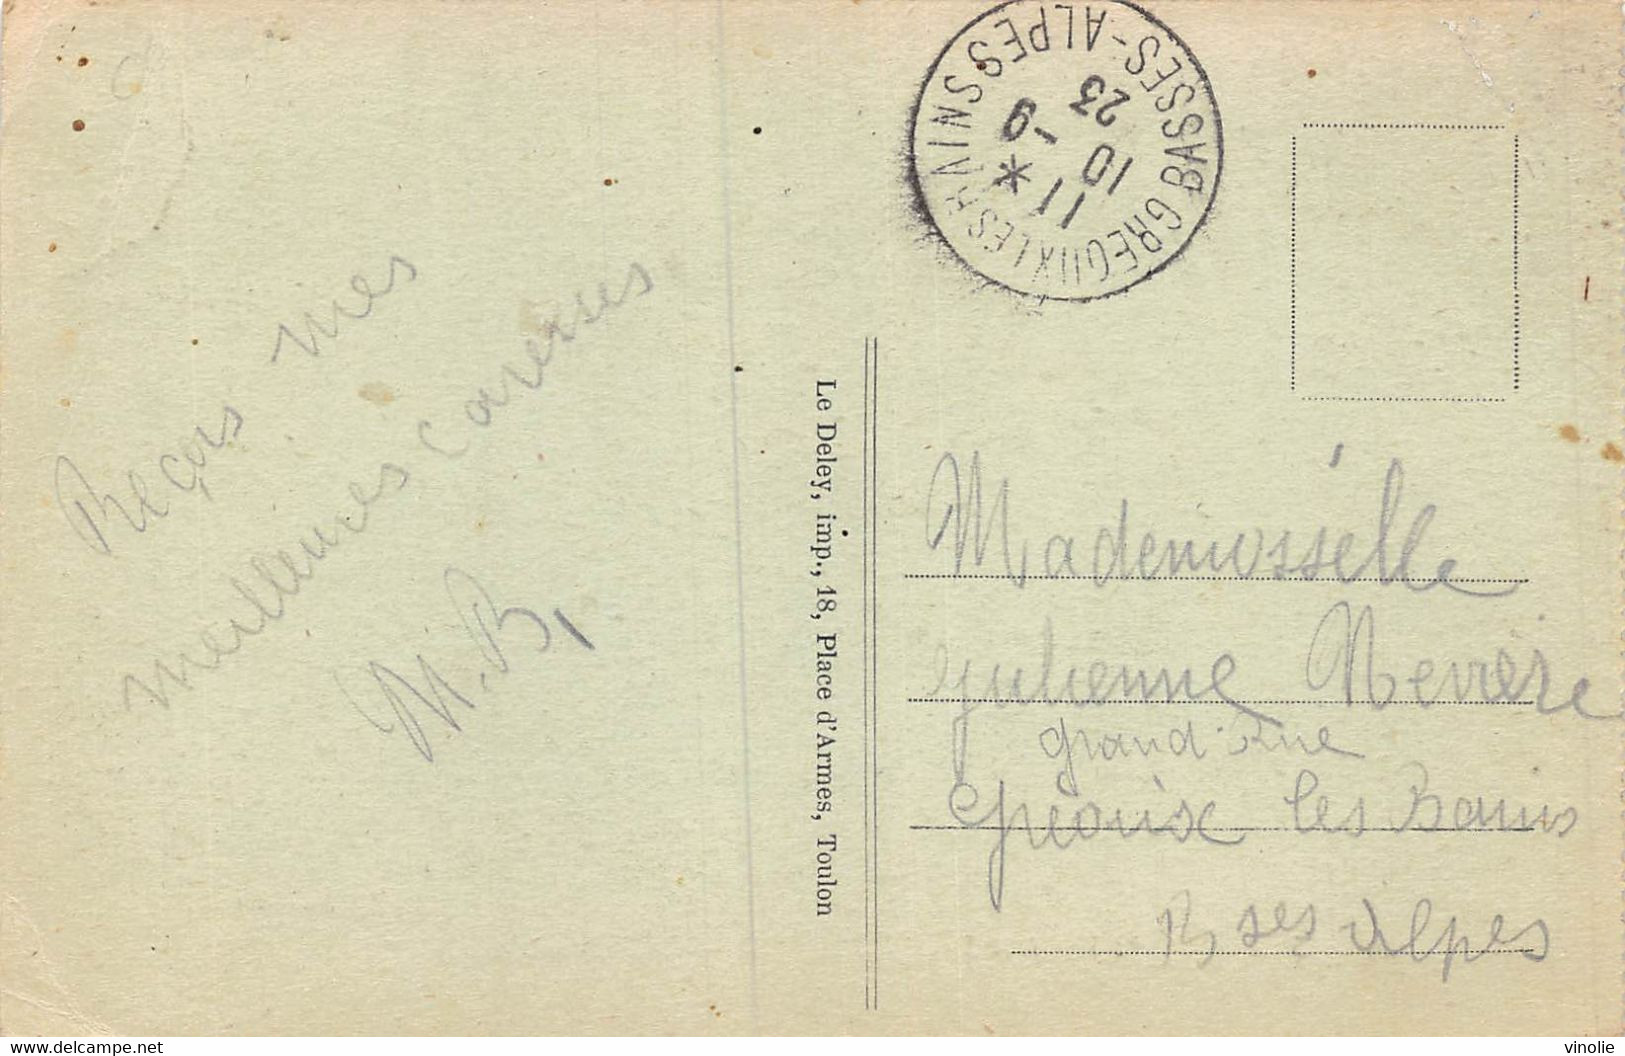 Reçois mes
meilleures caresses
M.B,
Le Deley, imp., 18, Place d'Armes, Toulon
GREOUX LES BAINS
BASSES-ALPES
11
10 -9
23
Mademoisselle
Julienne Nevière
grand'Rue
Gréoux les Bains
Bses Alpes
www.delcampe.net
vinolie